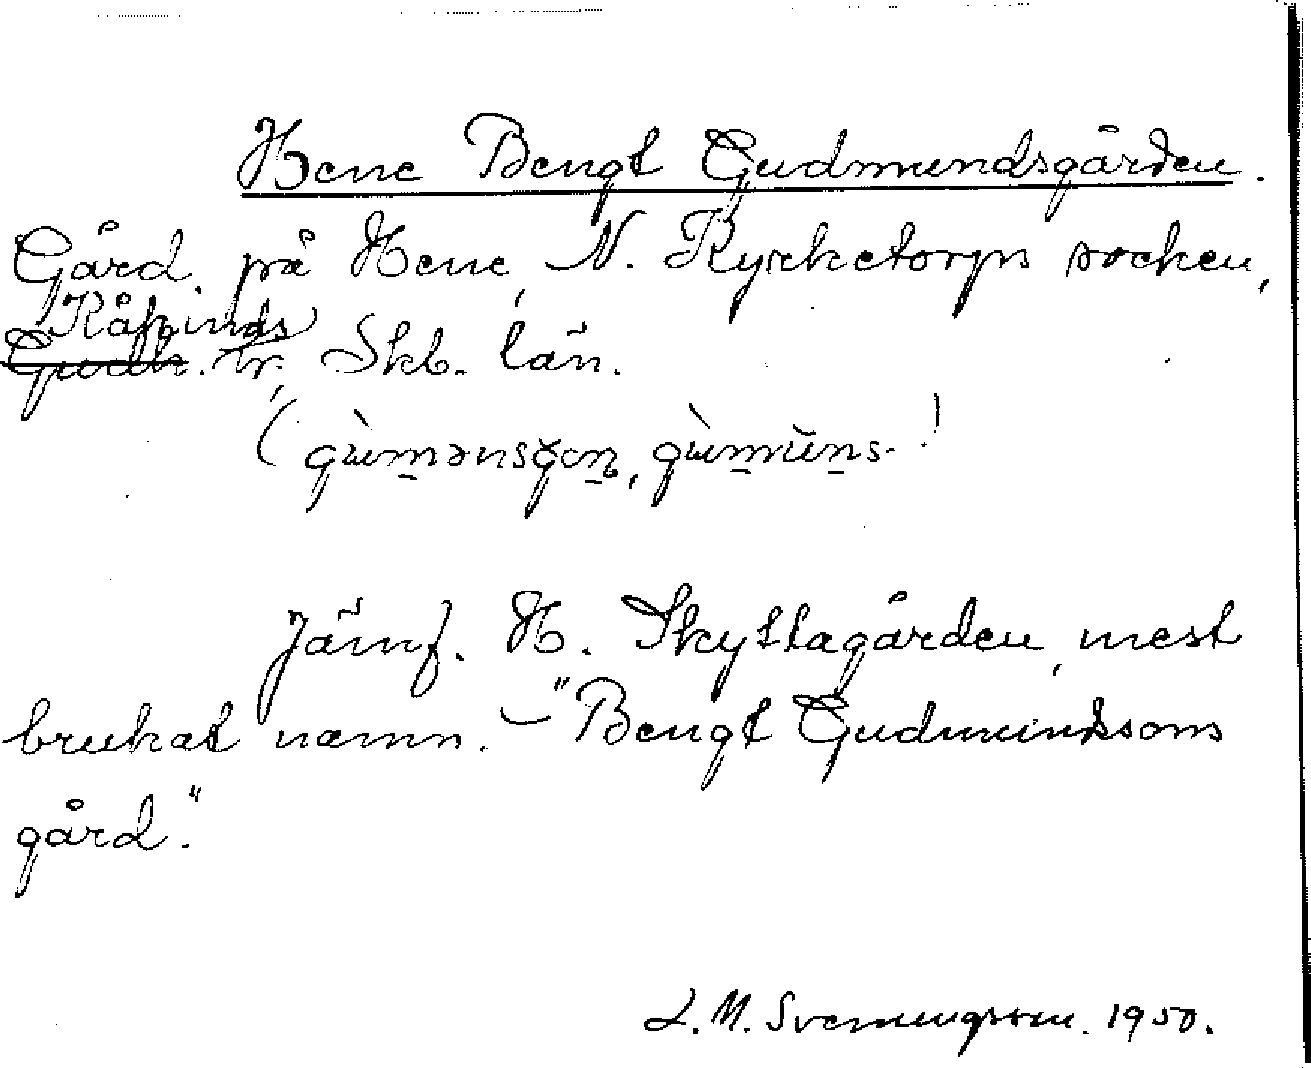 Hene Bengt Gudmundsgården.
Gård på Hene, N. Kyrketorps socken,
Kåkinds
Gudh. hr, Skb. län.
(gùmənsgɷn, gùmuns-!
Jämf. H. Skyttagården, mest
brukat namn. – "Bengt Gudmundssons
gård."
L. M. Svenungsson. 1950.